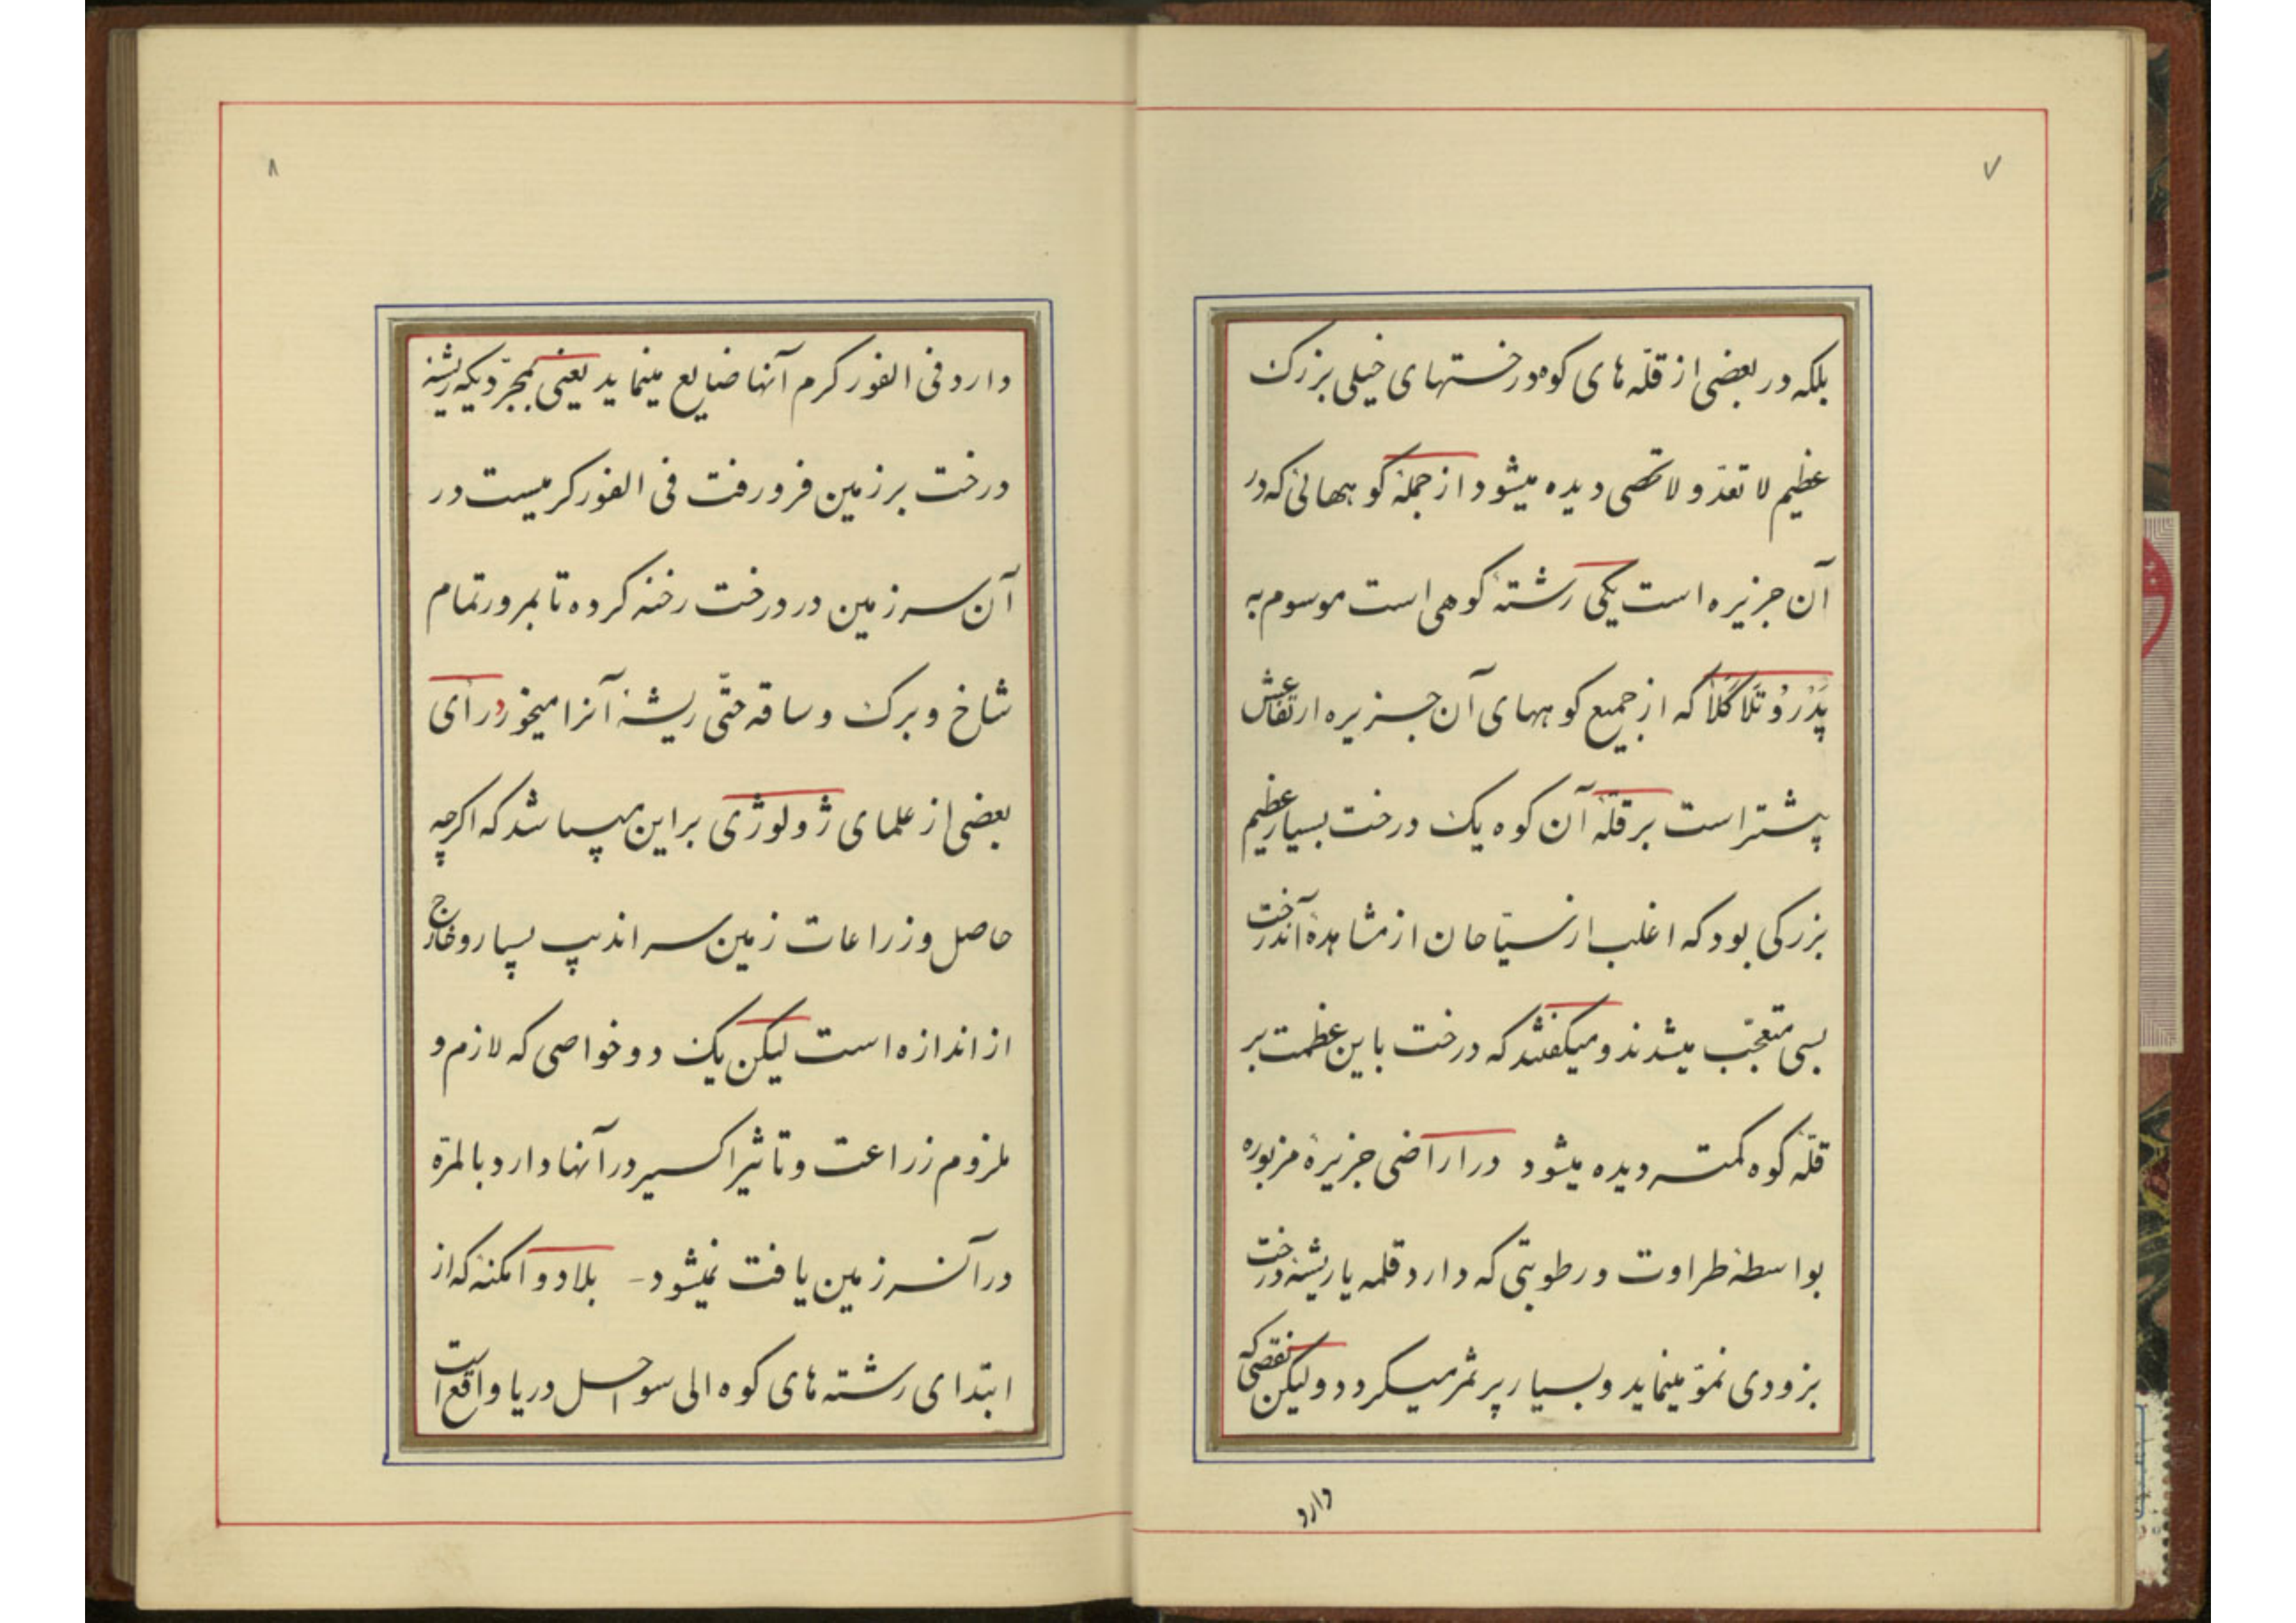 ۷
بلکه در بعضی از قلّه های کوه درختهای خیلی بزرک
عظیم لا تعدّ و لا تحصی دیده میشود از جملهٔ کوههائی که در
آن جزیره است یکی رشتهٔ کوهی است موسوم به
پَدْرُو تَلَا کَلَا که از جمیع کوههای آن جزیره ارتفاعش
پیشتر است بر قلّهٔ آن کوه یک درخت بسیار عظیم
بزرکی بود که اغلب از سیّاحان از مشاهدهٔ آندرخت
بسی متعجّب میشدند و میکفتند که درخت باین عظمت بر
قلّهٔ کوه کمتر دیده میشود در اراضی جزیرهٔ مزبوره
بواسطهٔ طراوت و رطوبتی که دارد قلمه یا ریشهٔ درخت
بزودی نموّ مینماید و بسیار پر ثمر میکردد ولیکن نقصی که
دارد
۸
دارد فی الفور کرم آنها ضایع مینماید یعنی بمجرّدیکه ریشهٔ
درخت بر زمین فرو رفت فی الفور کرمیست در
آن سرزمین در درخت رخنه کرده تا بمرور تمام
شاخ و برک و ساقه حتّی ریشهٔ آنرا میخورد رأی
بعضی از علمای ژولوژی براین میباشد که اکرچه
حاصل و زراعات زمین سراندیب بسیار و خارج
از اندازه است لیکن یک دو خواصی که لازم و
ملزوم زراعت و تاثیر اکسیر در آنها دارد بالمرّه
در آن سرزمین یافت نمیشود - بلاد و امکنهٔ که از
ابتدای رشته های کوه الی سواحل دریا واقع است